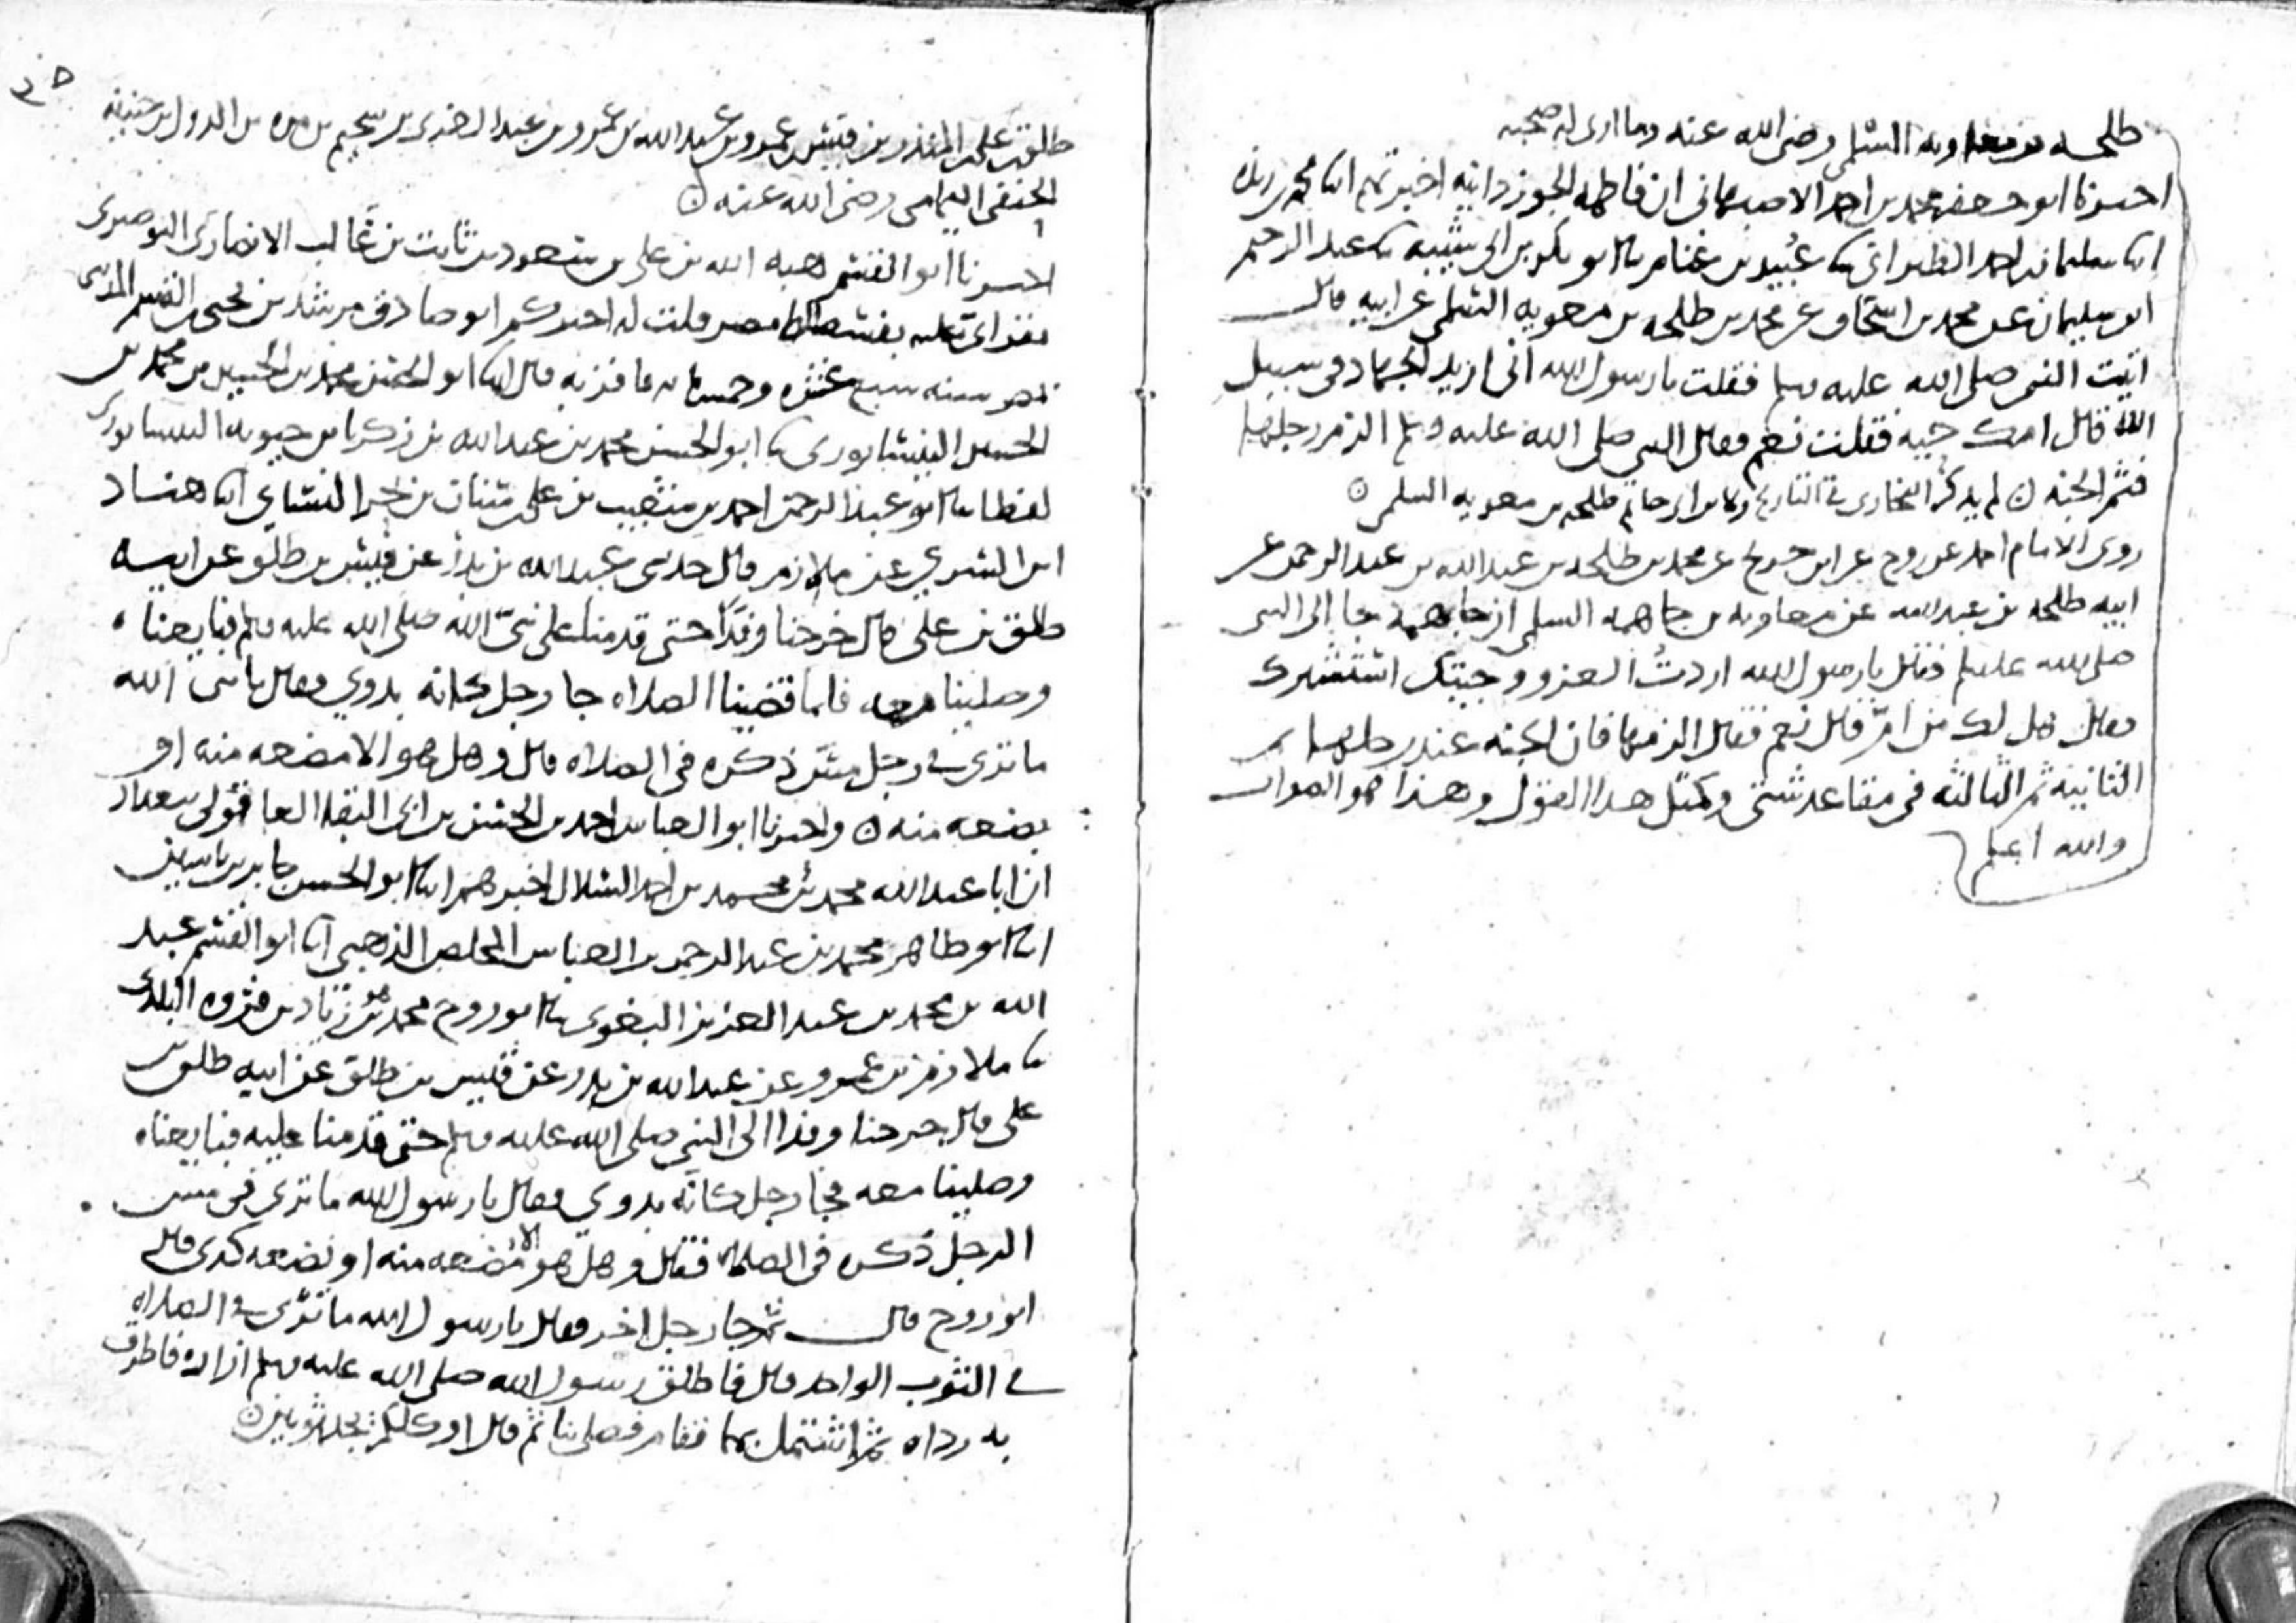 طلحه بن معاويه السلمي رضي الله عنه وما ارى له صحبه
اخبرنا ابو جعفر محمد بن احمد الاصبهاني ان فاطمه الجوزدانيه اخبرتهم انا محمد بن ريذه
انا سليمان بن احمد الطبراني نا عبيد بن غنام نا ابو بكر بن ابي شيبه نا عبد الرحيم
ابن سليمان عن محمد بن اسحاق عن محمد بن طلحه بن معويه السلمي عن ابيه قال
اتيت النبي صلى الله عليه وسلم فقلت يا رسول الله اني اريد الجهاد في سبيل
الله قال امك حيه فقلت نعم فقال النبي صلى الله عليه وسلم الزم رجلها
فثم الجنه ن لم يذكر البخاري في التاريخ ولا بن ابي حاتم طلحه بن معويه السلمي ن
روى الامام احمد عن روح عن ابن جريج عن محمد بن طلحه بن عبد الله بن عبد الرحمن عن
ابيه طلحه بن عبد الله عن معاويه بن جاهمه السلمي ان جاهمه جا الى النبي
صلى الله عليه وسلم فقال يا رسول الله اردت الغزو وجيتك استشيرك
فقال هل لك من ام قال نعم فقال الزمها فان الجنه عند رجلها ثم
الثانيه ثم الثالثه في مقاعد شتى وكمثل هذا القول وهذا هو الصواب
والله اعلم
٣٥
طلق بن علي بن المنذر بن قيس بن عمرو بن عبد الله بن عمرو بن عبد العزى بن سحيم بن مره بن الدول بن حنيفه
الحنفي اليمامي رضي الله عنه ن
اخبرنا ابو القسم هبه الله بن علي بن مسعود بن ثابت بن غالب الانصاري البوصيري
بقراتي عليه بفسطاط مصر قلت له اخبركم ابو صادق مرشد بن يحيى بن القسم المديني
سنه سبع عشره وخمسمايه فاقر به قال انا ابو الحسن محمد بن الحسين بن محمد بن
الحسين النيسابوري نا ابو الحسن محمد بن عبد الله بن زكريا بن حيويه النيسابوري
لفظا نا ابو عبد الرحمن احمد بن شعيب بن علي بن سنان بن بحر النساي انا هناد
ابن السري عن ملازم قال حدثني عبد الله بن بدر عن قيس بن طلق عن ابيه
طلق بن علي قال خرجنا وفدا حتى قدمنا على نبي الله صلى الله عليه وسلم فبايعناه
وصلينا معه فلما قضينا الصلاه جا رجل كانه بدوي فقال يا نبي الله
ما ترى في رجل مس ذكره في الصلاه قال وهل هو الا مضغه منه او
بضعه منه ن واخبرنا ابو العباس احمد بن الحسن بن ابي البقا العاقولي ببغداد
ان ابا عبد الله محمد بن محمد بن احمد السلال اخبرهم انا ابو الحسن جابر بن ياسين
انا ابو طاهر محمد بن عبد الرحمن بن العباس المخلص الذهبي انا ابو القسم عبد
الله بن محمد بن عبد العزيز البغوي نا ابو روح محمد هو بن زياد بن فروه البلدي
نا ملازم بن عمرو عن عبد الله بن بدر عن قيس بن طلق عن ابيه طلق بن
علي قال خرجنا وفدا الى النبي صلى الله عليه وسلم حتى قدمنا عليه فبايعناه
وصلينا معه فجا رجل كانه بدوي فقال يا رسول الله ما ترى في مس
الرجل ذكره في الصلاه فقال وهل هو الا مضغه منه او بضعه كذى قال
ابو روح قال ثم جا رجل اخر فقال يا رسول الله ما ترى في الصلاه
في الثوب الواحد قال فاطلق رسول الله صلى الله عليه وسلم ازاره فاطرق
به رداه ثم اشتمل بهما فقام فصلى بنا ثم قال او كلكم يجد ثوبين ن